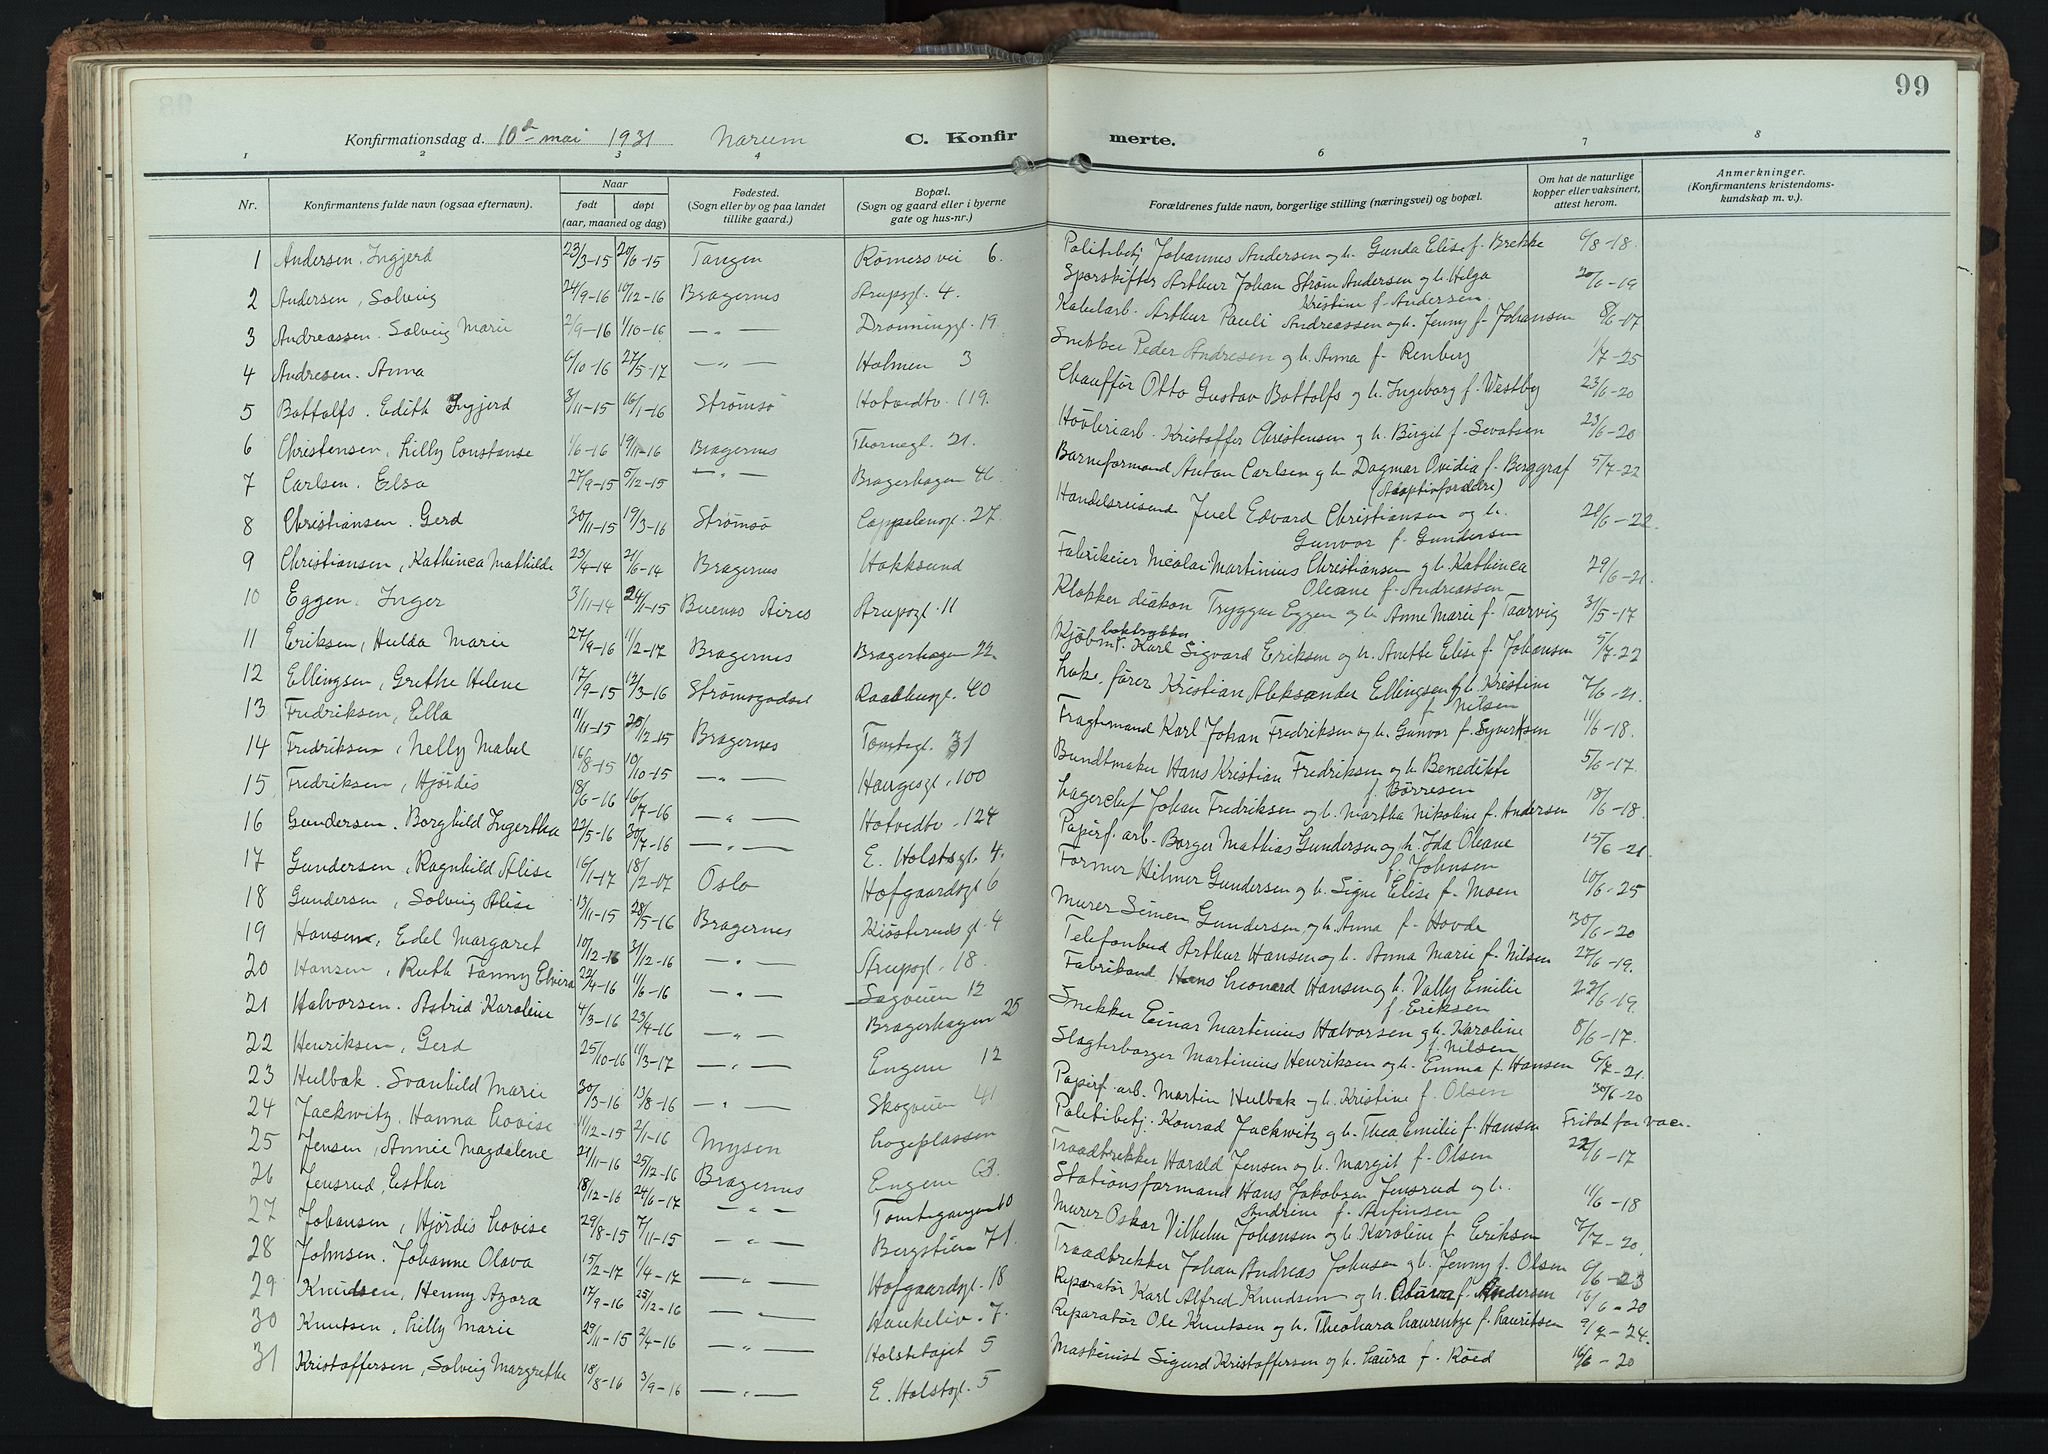 99
Konfirmationsdag d. 10de mai 1931 Narum C. Konfirmerte.
1 2 3 4 6 7 8
Nr. Konfirmantens fulde navn (ogsaa efternavn). Naar født døpt (aar, maaned og dag) Fødested. (Sogn eller by og paa landet tillike gaard.) Bopæl. (Sogn og gaard eller i byerne gate og hus-nr.) Forældrenes fulde navn, borgerlige stilling (næringsvei) og bopæl. Om hat de naturlige kopper eller vaksinert, attest herom. Anmerkninger. (Konfirmantens kristendomskundskap m. v.).
1 Andersen, Ingjerd 23/3-15 20/6-15 Tangen Rømersvei 6. Politibetj. Johannes Andersen og h. Gunda Elise f. Brekke 6/8-18.
2 Andersen, Solveig 24/9-16 10/12-16 Bragernes Strupsgt. 4. Sporskifter Arthur Johan Strøm Andersen og h. Helga Kristine f. Andersen 20/6-19
3 Andreassen, Solveig Marie 2/9-16 1/10-16 —„— Dronninggt. 19 Kabelarb. Arthur Pauli Andreassen og h. Jenny f. Johansen 8/6-17
4 Andresen, Anna 6/10-16 27/5-17 —„— Holmen 3 Snekker Peder Andresen og h. Anna f. Renberg 1/7-25
5 Bottolfs, Edith Ingjerd 3/11-15 16/1-16 Strømsø Hotvedtv. 119. Chauffør Otto Gustav Bottolfs og h. Ingeborg f. Westby 23/6-20
6 Christensen, Lilly Constanse 1/6-16 19/11-16 Bragernes Thornegt. 21. Høvleriarb. Kristoffer Christensen og h. Birgit f. Sevatsen 23/6-20
7 Carlsen, Elsa 27/9-15 5/12-15 —„— Bragerhagen 46 Barneformand Anton Carlsen og h. Dagmar Ovidia f. Berggraf (Adoptivforeldre) 5/7-22
8 Christiansen, Gerd 30/11-15 19/3-16 Strømsø Cappelensgt. 27. Handelsreisende Juel Edvard Christiansen og h. Gunvor f. Gundersen 21/6-22.
9 Christiansen, Kathinca Mathilde 23/4-14 21/6-14 Bragernes Hokksund Fabrikeier Nicolai Martinius Christiansen og h. Kathinca Oleane f. Andreassen 29/6-21.
10 Eggen, Inger 3/11-14 24/1-15 Buenos Aires Strupsgt. 11 Klokker diakon Tryggve Eggen og h. Anne Marie f. Taarvig 31/5-17
11 Eriksen, Hulda Marie 27/9-16 11/2-17 Bragernes Bragerhagen 22. Kjøbm. boktrykker Karl Sigvard Eriksen og h. Anette Elise f. Johansen 5/7-22
12 Ellingsen, Grethe Helene 17/9-15 12/3-16 Strømsgodset Raadhusgt. 40 Lok. fører Kristian Aleksander Ellingsen og h. Kristine f. Nilsen 7/6-21.
13 Fredriksen, Ella 11/11-15 20/2-15 Bragernes Tomtegt. 31 Fragtemand Karl Johan Fredriksen og h. Gunvor f. Syvertsen 11/6-18.
14 Fredriksen, Nelly Mabel 16/8-15 10/10-15 —„— Haugesgt. 100 Bundtmaker Hans Kristian Fredriksen og h. Benedikte f. Børresen 5/6-17.
15 Fredriksen, Hjørdis 18/6-16 16/7-16 —„— Hotvedtv. 124 Lagerchef Johan Fredriksen og h. Martha Nikoline f. Andersen 18/6-18.
16 Gundersen, Borghild Ingertha 22/5-16 30/7-16 —„— E. Holstsgt. 4. Papirf. arb. Borger Mathias Gundersen og h. Ida Oleane f. Johnsen 15/6-21.
17 Gundersen, Ragnhild Alise 16/1-17 18/2-17 Oslo Hofgaardsgt. 6 Former Hilmer Gundersen og h. Signe Elise f. Moen 10/6-25
18 Gundersen, Solveig Alise 13/11-15 28/5-16 Bragernes Kiøsterudsgt. 4 Murer Simen Gundersen og h. Anna f. Hovde 30/6-20
19 Hansen, Edel Margaret 10/12-16 31/12-16 —„— Strupsgt. 18. Telefonbud Arthur Hansen og h. Anna Marie f. Nilsen 27/6-19.
20 Hansen, Ruth Fanny Elvira 22/4-16 11/6-16 —„— Sagveien 12 Fabrikand Hans Leonard Hansen og h. Vally Emilie f. Eriksen 22/6-19.
21 Halvorsen, Astrid Karoline 4/3-16 23/4-16 —„— Bragerhagen 25 Snekker Einar Martinius Halvorsen og h. Karoline f. Nilsen 8/6-17.
22 Henriksen, Gerd 25/10-16 11/3-17 —„— Engene 12 Slagterborger Martinius Henriksen og h. Emma f. Hansen 6/7-21.
23 Hulbak, Svanhild Marie 30/3-16 13/8-16 —„— Skogveien 41 Papirf. arb. Martin Hulbak og h. Kristine f. Olsen 30/6-20
24 Jackwitz, Hanna Lovise 11/12-15 2/1-16 Mysen Logeplassen Politibetj. Konrad Jackwitz og h. Thea Emilie f. Hansen Fritat for vac.
25 Jensen, Annie Magdalene 21/11-16 25/12-16 Bragernes Engene 63. Traadtrekker Harald Jensen og h. Margit f. Olsen 22/6-17
26 Jensrud, Esther 18/12-16 24/6-17 —„— Tomtegangen 10 Stationsformand Hans Jakobsen Jensrud og h. Andrine f. Anfinsen 11/6-18
27 Johansen, Hjørdis Lovise 29/8-15 7/11-15 —„— Bergstien 71. Murer Oskar Vilhelm Johansen og h. Karoline f. Eriksen 7/7-20.
28 Johnsen, Johanne Olava 15/2-17 1/4-17 —„— Hofgaardsgt. 18 Traadtrekker Johan Andreas Johnsen og h. Jenny f. Olsen 6/6-23
29 Knudsen, Henny Agora 17/9-16 25/12-16 —„— Haukeliv. 7. Reparatør Karl Alfred Knudsen og h. Olava f. Andersen 16/6-20
30 Knutsen, Lilly Marie 29/11-15 2/4-16 —„— Holstetajet 5 Reparatør Ole Knutsen og h. Theohara Laurentze f. Lauritsen 9/7-24.
31 Kristoffersen, Solveig Margrethe 18/8-16 3/9-16 —„— E. Holstsgt. 5 Maskinist Sigurd Kristoffersen og h. Laura f. Røed 16/6-20